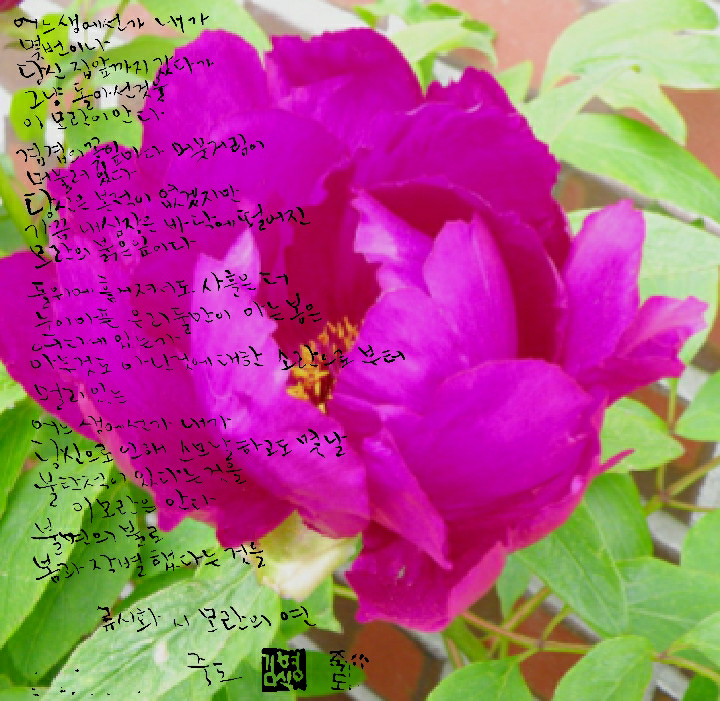 어느 생에선가 내가
몇번이나
당신 집앞까지 갔다가
그냥 돌아선것을
이 모란이 안다
겹겹의 꽃잎마다 머뭇거림이
머물러 있다
당신은 본적이 없겠지만
가끔 내 심장은 바닥에 떨어진
모란의 붉은 잎이다
돌 위에 흩어져서도 사흘은 더
눈이 아픈 우리 둘만이 아는 봄은
어디에 있는가
아무것도 아닌것에 대한 소란으로 부터
멀리 있는
어느 생에선가 내가
당신으로 인해 소모날 하고도 몇날
불탄적이 있다는 것을
이 모란은 안다
불면의 불로
봄과 작별 했다는 것을
류시화 시 모란의 연
죽도
죽도